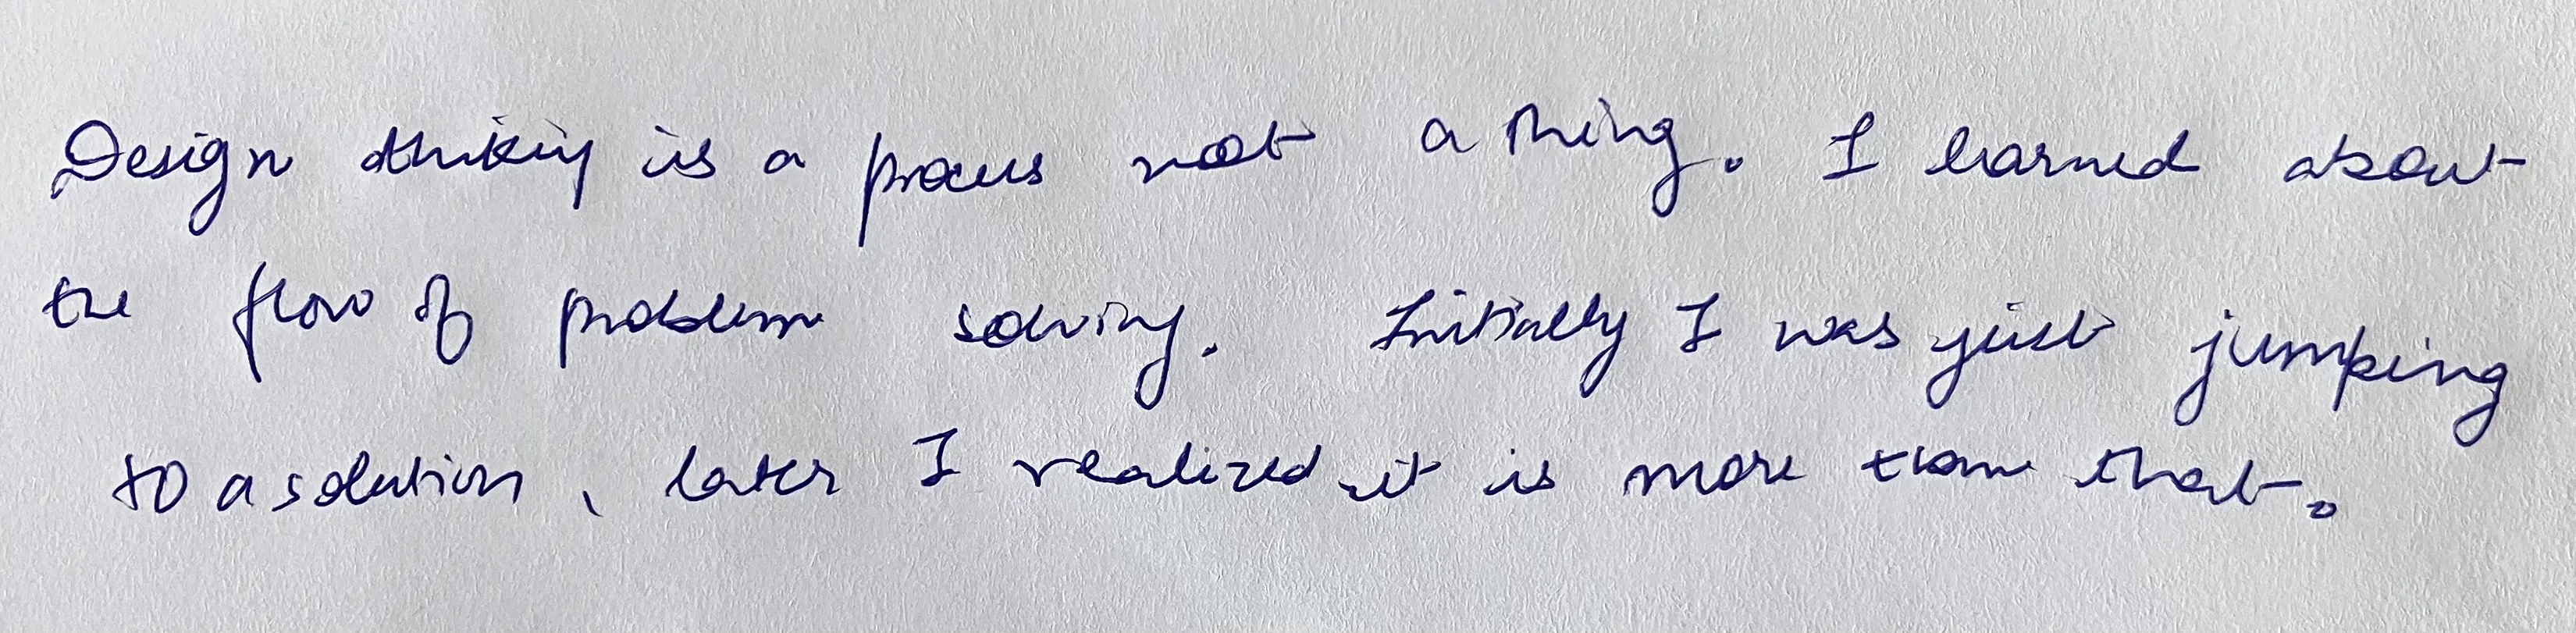 Design thinking is a process not a thing. I learned about
the flow of problem solving. Initially I was just jumping
to a solution, later I realized it is more than that.